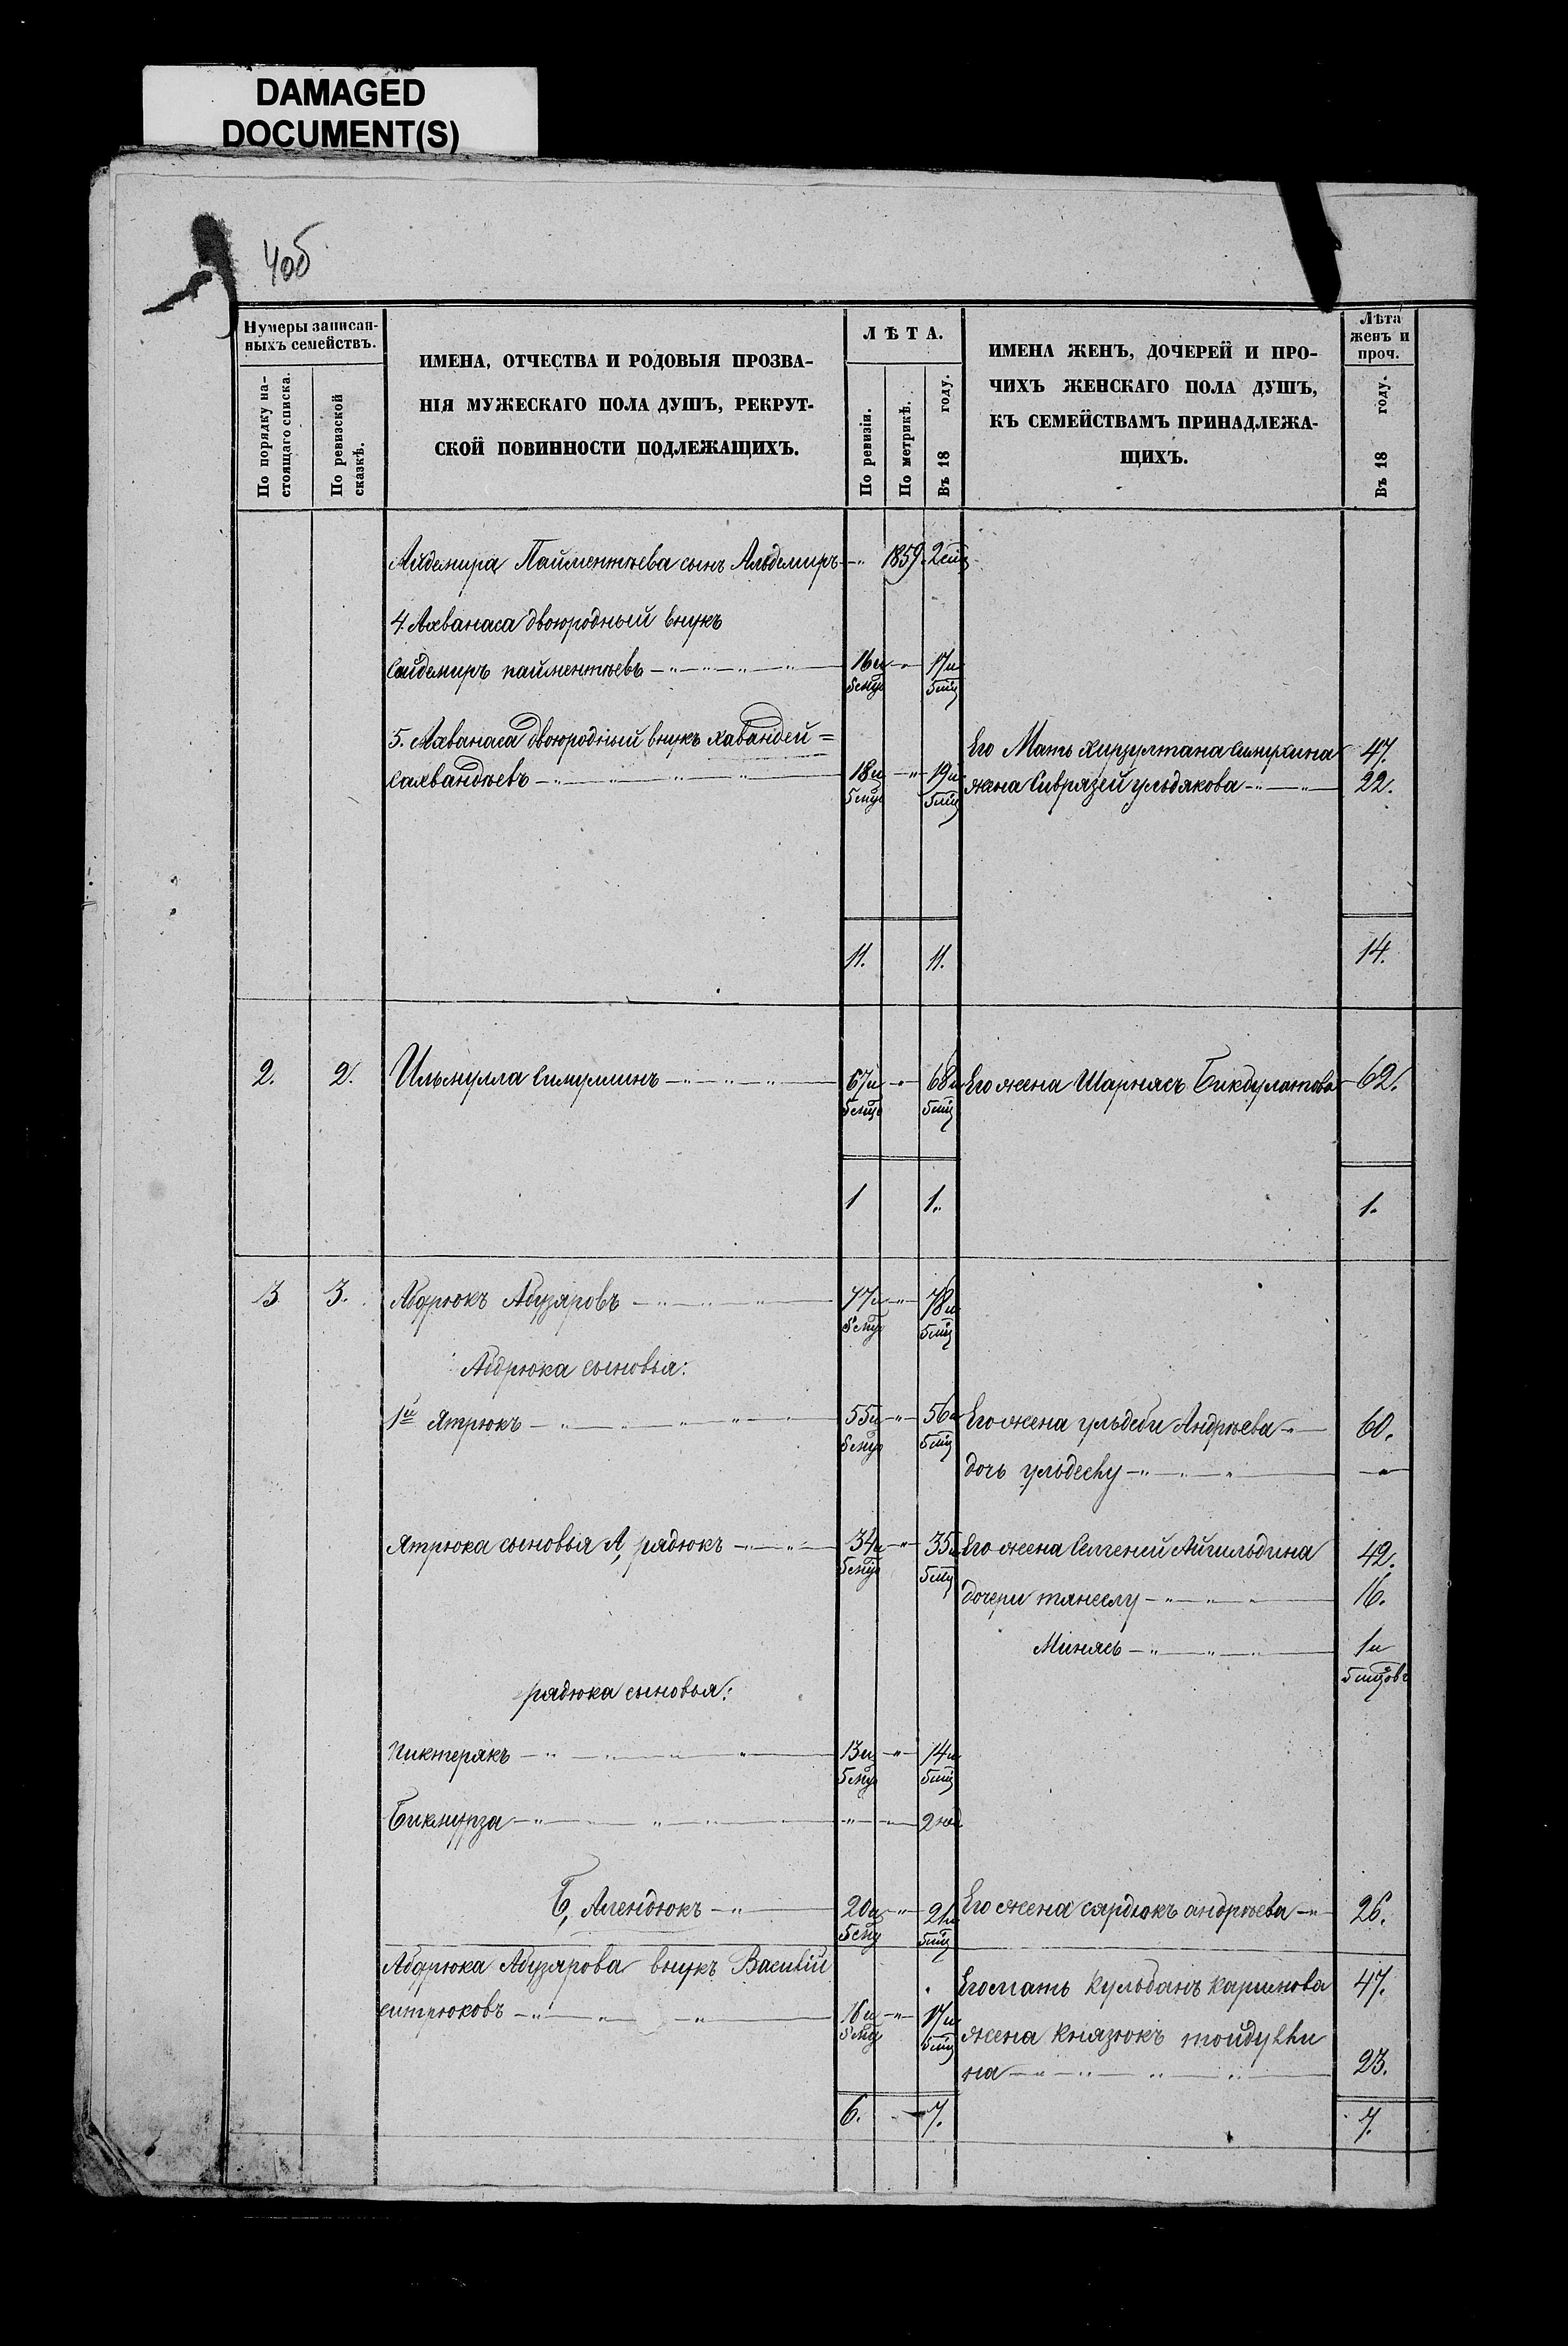 DAMAGED
DOCUMENT(S)
4об
Нумеры записан-
ныхъ семействъ.
По порядку на-
стоящаго списка.
По ревизской
сказкѣ.
ИМЕНА, ОТЧЕСТВА И РОДОВЫЯ ПРОЗВА-
НІЯ МУЖЕСКАГО ПОЛА ДУШЪ, РЕКРУТ-
СКОЙ ПОВИННОСТИ ПОДЛЕЖАЩИХЪ.
ЛѢТА.
По ревизіи.
По метрикѣ.
Въ 18 году.
ИМЕНА ЖЕНЪ, ДОЧЕРЕЙ И ПРО-
ЧИХЪ ЖЕНСКАГО ПОЛА ДУШЪ,
КЪ СЕМЕЙСТВАМЪ ПРИНАДЛЕЖА-
ЩИХЪ.
Лѣта
женъ и
проч.
Въ 18 году.
Айдемира Пайментѣева сынъ Альдемиръ 1859
4. Ахванаса двоюродный внукъ
Сайдемиръ пайментѣевъ 16и 17и
5. Ахванаса двоюродный внукъ хавандей =
Сахвандѣевъ 18и 19и
Его Мать 47.
жена ульдякова 22.
11. 11. 14.
2. 2. Ильмулла 67и 68и Его жена Шарнясъ Бикбулатова 62.
1 1. 1.
3 3. Абдрюкъ Абузяровъ 77и 78и
Абдрюка сыновья:
1й Ятрюкъ 55и 56и Его жена ульдеби Андрѣева 60.
дочь
Ятрюка сыновья А, рядюкъ 34и 35и Его жена Айгильдина 42.
дочери тянеслу 16.
Минясь 1и
рядюка сыновья:
пиктерякъ 13и 14и
Бикмурза 2 нед
Б, Алендюкъ 20и 21и Его жена сярдюкъ андрѣева 26.
Абдрюка Абузярова внукъ Василій
ситрюковъ 16и 17и
Его мать Кульбанъ каримова 47.
жена Князюкъ
на 23.
6. 7. 7.